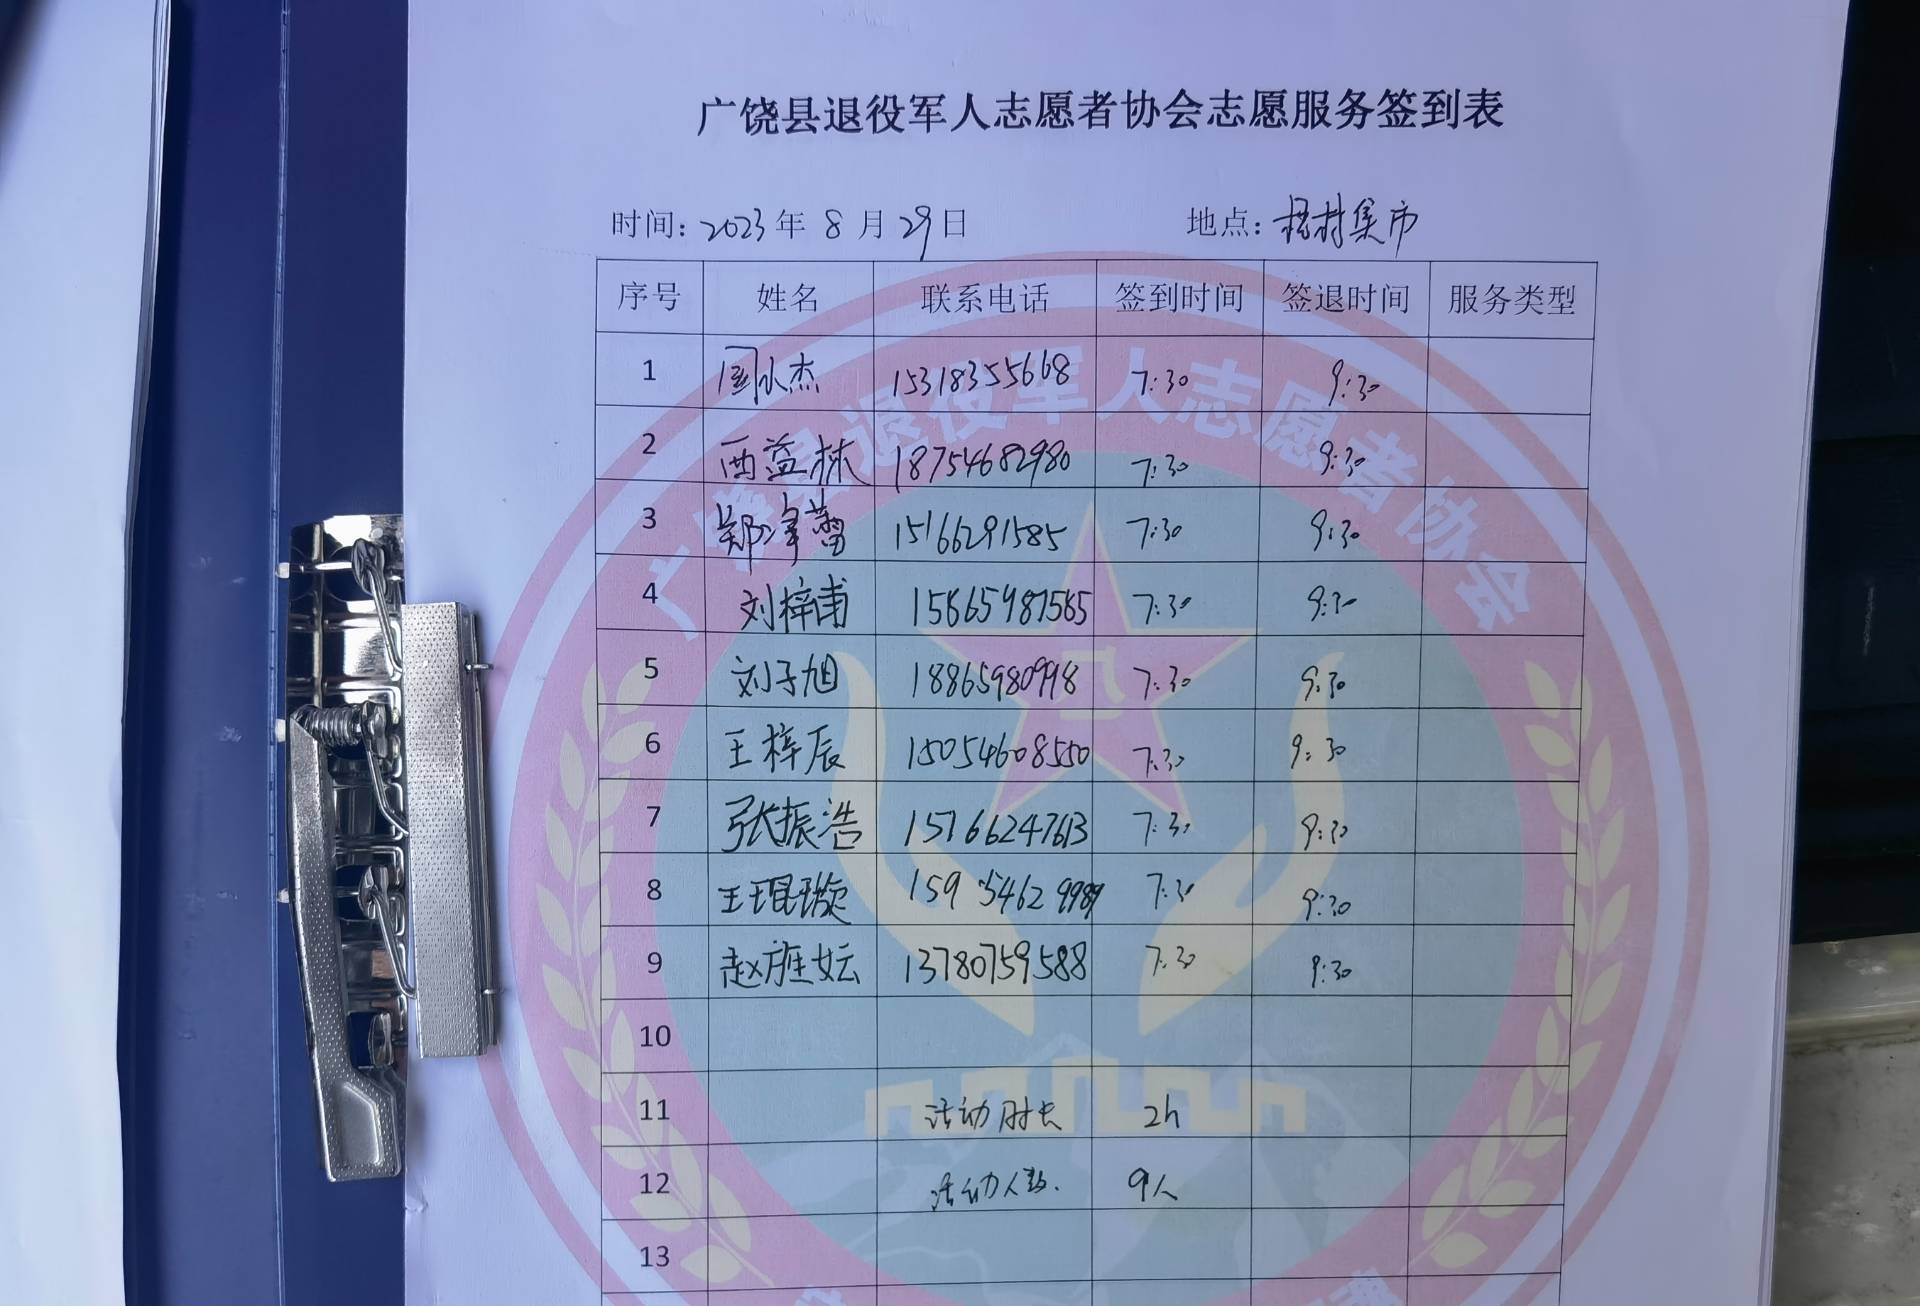 广饶县退役军人志愿者协会志愿服务签到表
时间: 2023 年 8 月 29 日 地点: 村集市
序号 姓名 联系电话 签到时间 签退时间 服务类型
1 周小杰 15318355668 7:30 9:30
2 西益林 18754682980 7:30 9:30
3 郑泽蕾 15166291585 7:30 9:30
4 刘梓甫 15865987585 7:30 9:30
5 刘子旭 18865980998 7:30 9:30
6 王梓辰 15054608550 7:30 9:30
7 张振浩 15766247613 7:30 9:30
8 王琨璇 159 5462 9989 7:30 9:30
9 赵旌妘 13780759588 7:30 9:30
10
11 活动时长 2h
12 活动人数. 9人
13
广饶县退役军人志愿者协会